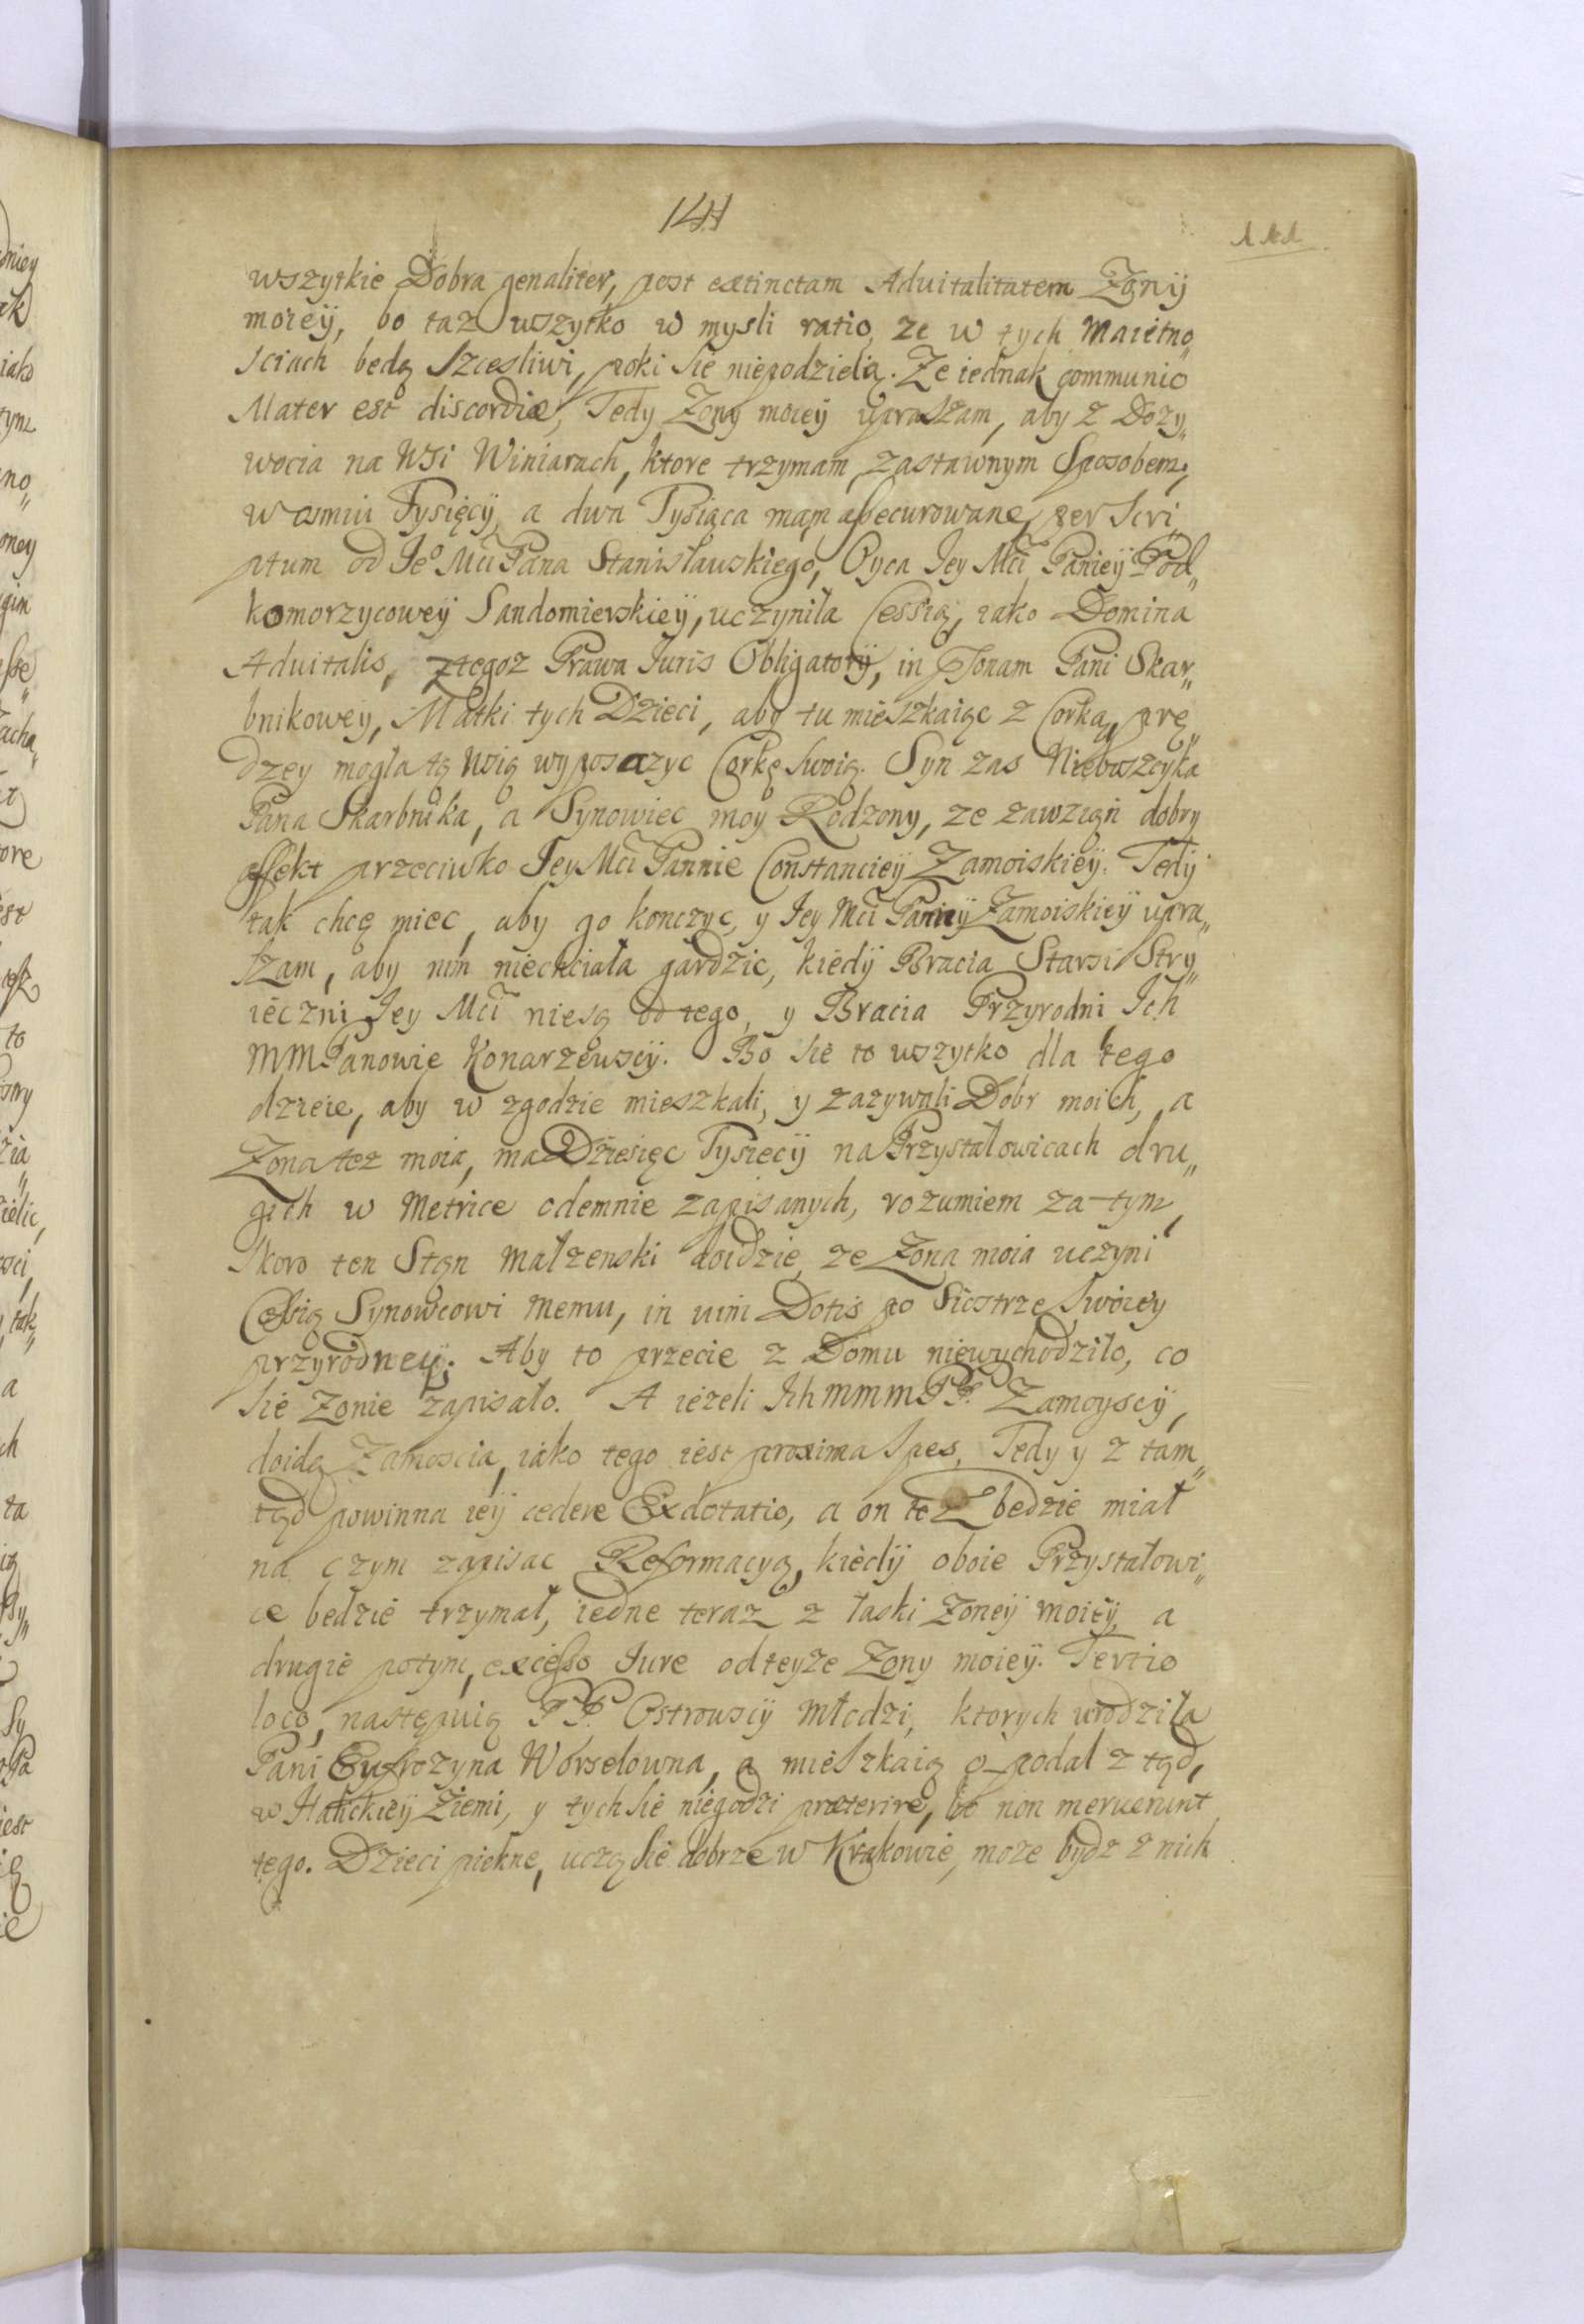 141
wszytkie Dobra genaliter, post extinctam Aduitalitatem Zony
moiey, bo taz wszytko w mysli ratio, ze w tych Maiętno„
sciach będą szczesliwi, poki sie niepodzielią. Ze iednak communio
Mater est discordiæ, Tedy Zony moiey upraszam, aby z Dozy„
wocia na Wsi Winiarach, ktore trzymam, zastawnym Sposobem,
w osmiu Tysięcy, a dwa Tysiąca mam assecurowane, per Scri„
ptum od Jeº Mći Pana Stanisławskiego, Oyca Jey Mći Paniey Pod„
komorzycowey Sandomierskiey, uczyniła Cessią, iako Domina
Aduitalis, ztegoz Prawa Iuris Obligatorij, in psonam Pani Skar„
bnikowey, Matki tych Dzieci, aby tu mieszkaiąc z Corką, prę„
dzey mogła tą Wsią wyposazyc Corkę swoią. Syn zas Niebuszczyka
Pana Skarbnika, a Synowiec moy Rodzony, ze zawziął dobry
affekt przeciwko Jey Mći Pannie Constanciey Zamoiskiey. Tedy
tak chcę miec, aby go konczyc, y Jey Mći Paniey Zamoiskiey upra„
szam, aby nim niechciała gardzic, kiedy Bracia Starsi Stry„
ieczni Jey Mći niesą od tego, y Bracia Przyrodni Ich
MM Panowie Konarzewscy. Bo sie to wszytko dla tego
dzieie, aby w zgodzie mieszkali, y zazywali Dobr moich, a
Zona tez moia, ma Dziesięc Tysięcy na Przystałowicach dru„
gich w Metrice odemnie zapisanych, rozumiem za tym,
skoro ten Stąn Małzenski doidzie, ze Zona moia uczyni
Cessią Synowcowi memu, in uim Dotis po Siostrze swoiey
przyrodney. Aby to przecie z Domu niewychodziło, co
sie Zonie zapisało. A iezeli Ich MMM PP. Zamoyscy,
doidą Zamoscia, iako tego iest proxima spes, Tedy y z tam„
tąd powinna iey cedere Exdotatio, a on tez będzie miał
na czym zapisac Reformacyą, kiedy oboie Przystałowi„
ce będzie trzymał, iedne teraz z łaski Zoney moiey, a
drugie potym, excesso Iure odteyze Zony moiey. Tertio
loco, następuią PP. Ostrowscy Młodzi, ktorych urodziła
Pani Eufrozyna Worselowna, a mieszkaią o podal z tąd,
w Halickiey Ziemi, y tych sie niegodzi præterire, bo non meruerunt
tego. Dzieci piekne, uczą sie dobrze w Krakowie, moze bydz z nich